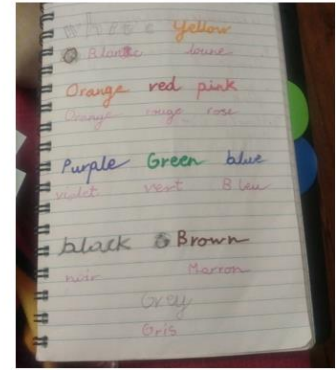 white Yellow
Blance Joune
Orange red pink
Orange rouge rose
Purple Green blue
violet vert Bleu
black Brown
noir Marron
Grey
Gris